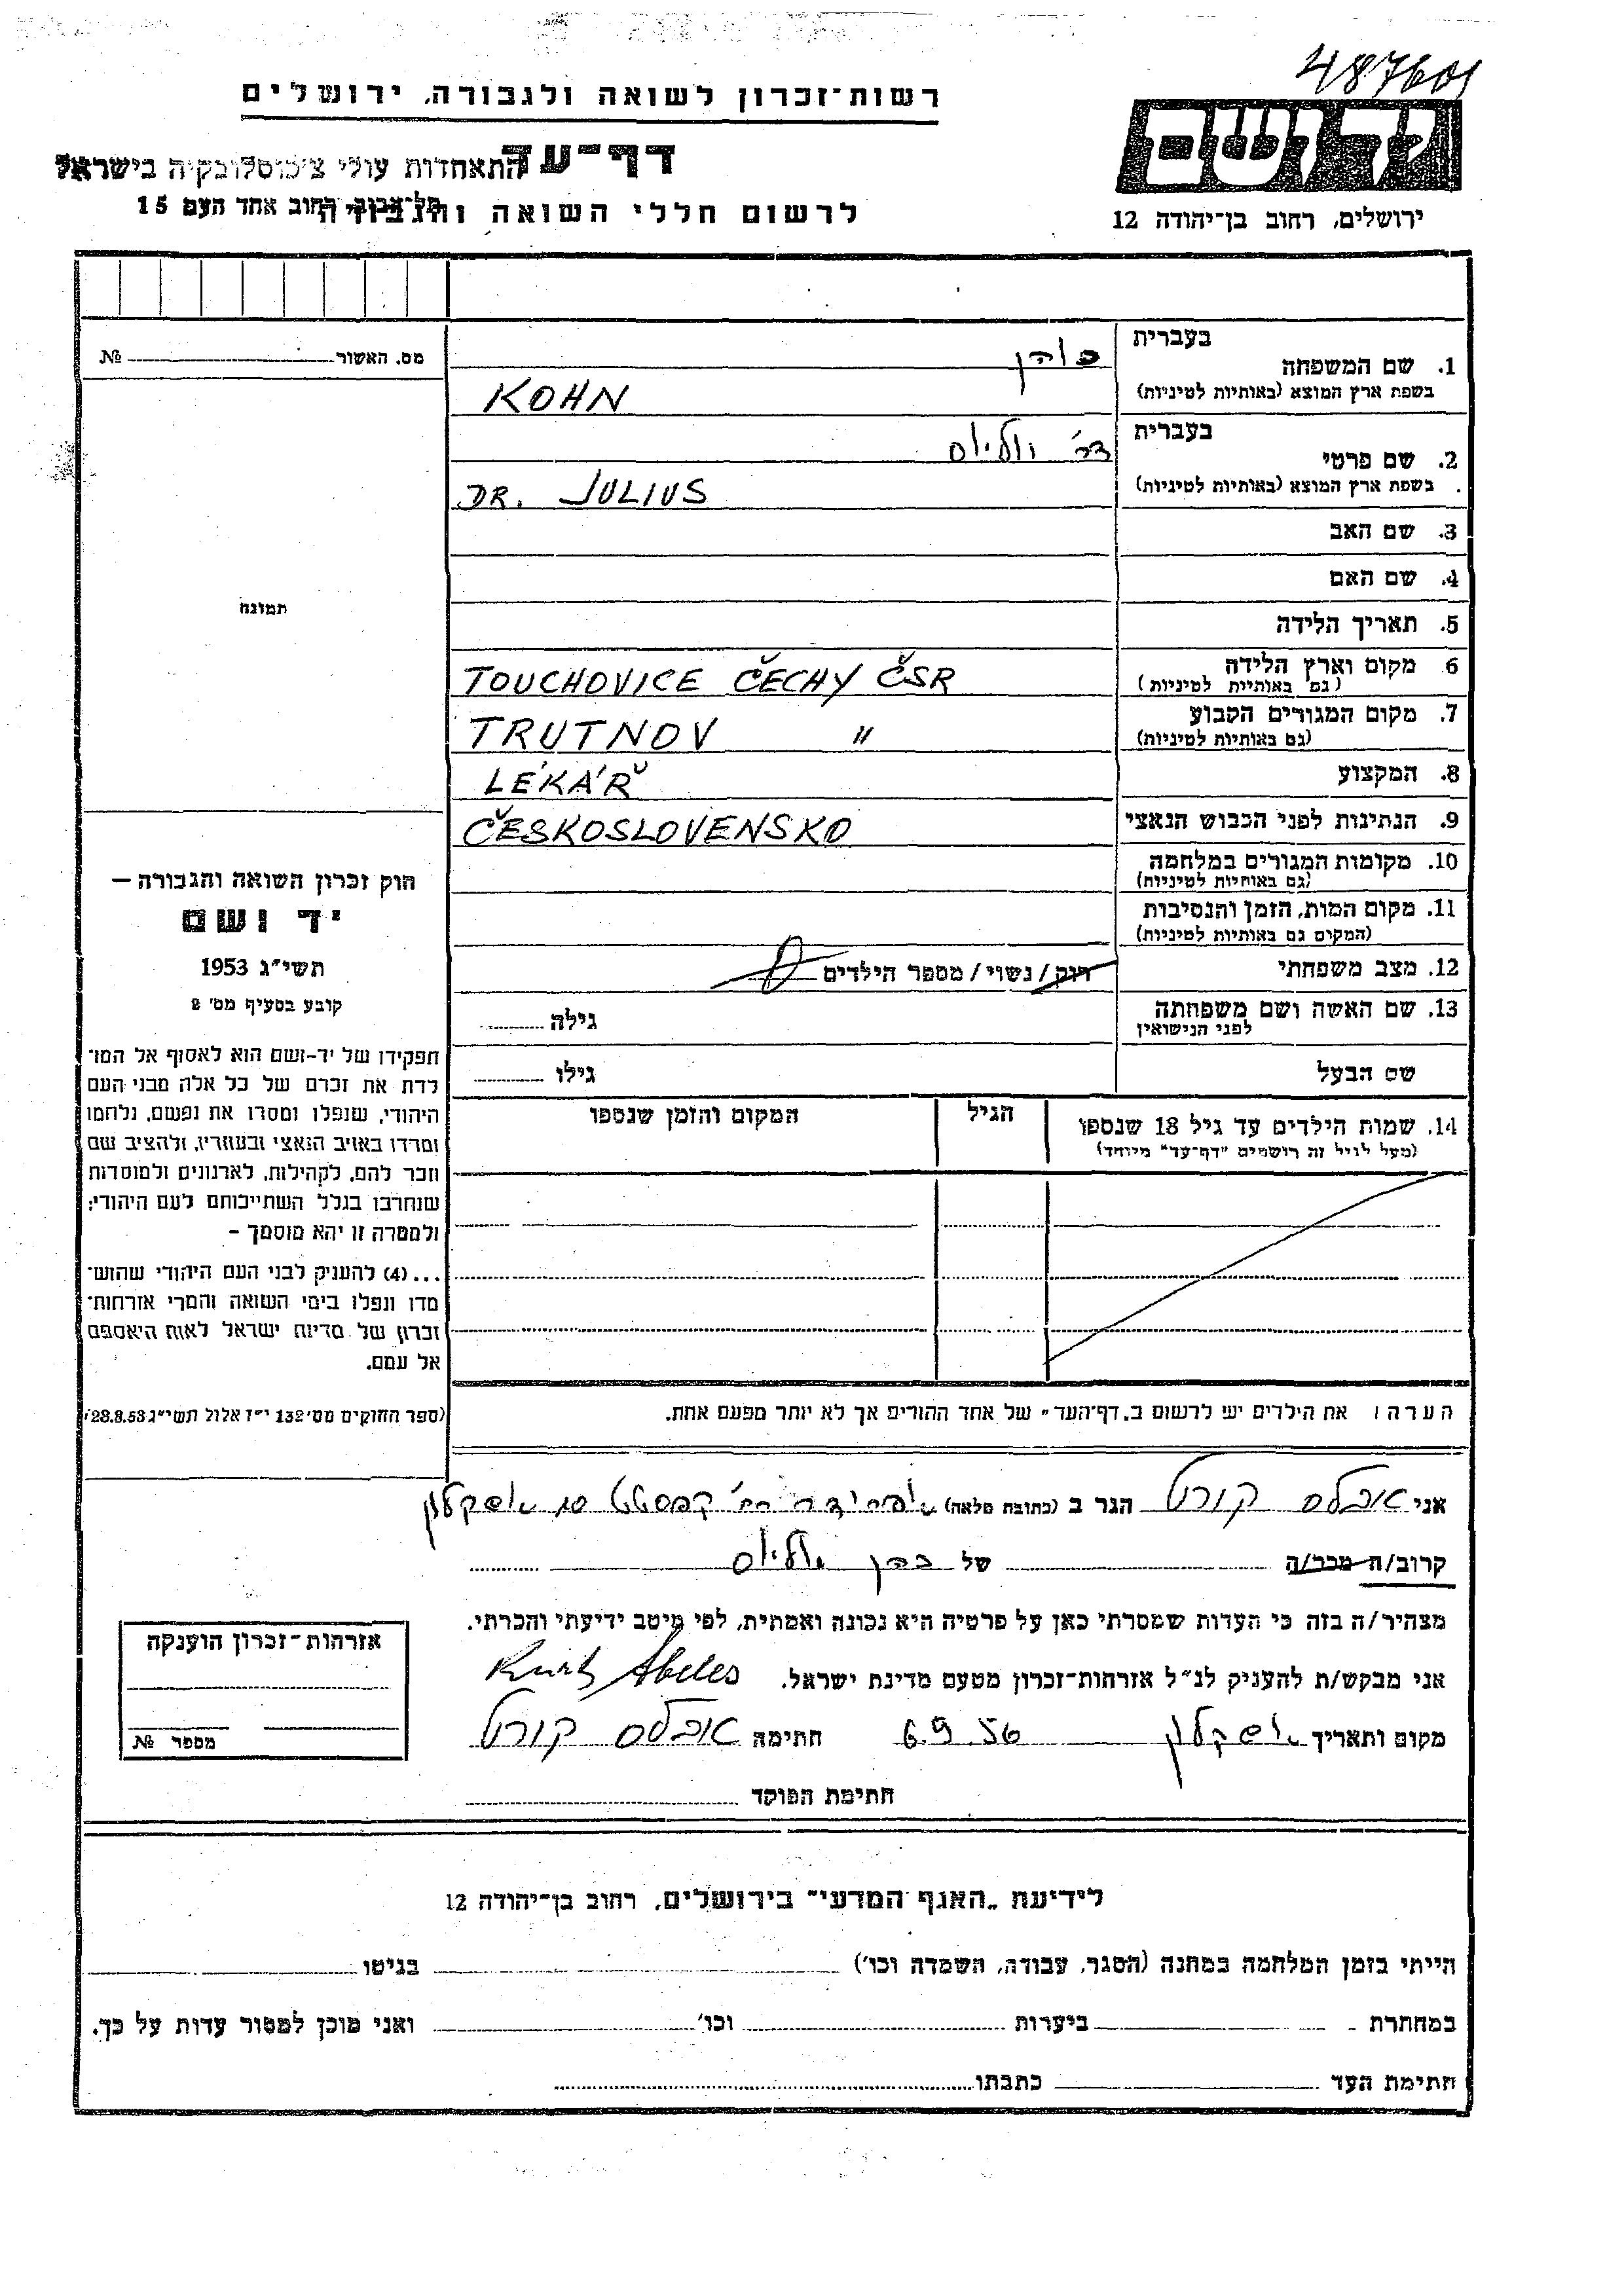 487601
רשות־זכרון לשואה ולגבורה, ירושלים
דף־עד
התאחדות עולי צ'כוסלובקיה בישראל
לרשום חללי השואה והגבורה
תל־אביב, רחוב אחד העם 15
ידושם
ירושלים, רחוב בן־יהודה 12
מס. האשור № 
תמונה
1. שם המשפחה
בעברית כוהן
בשפת ארץ המוצא (באותיות לטיניות) KOHN
2. שם פרטי
בעברית דר' יוליוס
בשפת ארץ המוצא (באותיות לטיניות) DR. JULIUS
3. שם האב
4. שם האם
5. תאריך הלידה
6. מקום וארץ הלידה TOUCHOVICE ČECHY ČSR
(גם באותיות לטיניות)
7. מקום המגורים הקבוע TRUTNOV "
(גם באותיות לטיניות)
8. המקצוע LÉKÁŘ
9. הנתינות לפני הכבוש הנאצי ČESKOSLOVENSKO
10. מקומות המגורים במלחמה
(גם באותיות לטיניות)
11. מקום המות, הזמן והנסיבות
(המקום גם באותיות לטיניות)
12. מצב משפחתי רווק/נשוי/מספר הילדים
13. שם האשה ושם משפחתה גילה
לפני הנישואין
שם הבעל גילו
14. שמות הילדים עד גיל 18 שנספו הגיל המקום והזמן שנספו
(מעל לגיל זה רושמים "דף־עד" מיוחד)
הערה: את הילדים יש לרשום ב„דף־העד" של אחד ההורים אך לא יותר מפעם אחת.
חוק זכרון השואה והגבורה —
יד ושם
תשי"ג 1953
קובע בסעיף מס' 2
תפקידו של יד-ושם הוא לאסוף אל המו־
לדת את זכרם של כל אלה מבני העם
היהודי, שנפלו ומסרו את נפשם, נלחמו
ומרדו באויב הנאצי ובעוזריו, ולהציב שם
וזכר להם, לקהילות, לארגונים ולמוסדות
שנחרבו בגלל השתייכותם לעם היהודי;
ולמטרה זו יהא מוסמך —
...(4) להעניק לבני העם היהודי שהוש־
מדו ונפלו בימי השואה והמרי אזרחות־
זכרון של מדינת ישראל לאות היאספם
אל עמם.
(ספר החוקים מס' 132 י"ז אלול תשי"ג 28.8.53)
אני אבלס קורט הגר ב (כתובת מלאה) אשקלון
קרוב/ה מכר/ה של כהן יוליוס
מצהיר/ה בזה כי העדות שמסרתי כאן על פרטיה היא נכונה ואמתית, לפי מיטב ידיעתי והכרתי.
אני מבקש/ת להעניק לנ"ל אזרחות־זכרון מטעם מדינת ישראל. Kurt Abeles
מקום ותאריך אשקלון 6.9.56 חתימה אבלס קורט
חתימת הפוקד
אזרחות־זכרון הוענקה
מספר №
לידיעת „האגף המדעי" בירושלים, רחוב בן־יהודה 12
הייתי בזמן המלחמה במחנה (הסגר, עבודה, השמדה וכו') בגיטו
במחתרת ביערות וכו' ואני מוכן למסור עדות על כך.
חתימת העד כתבתו